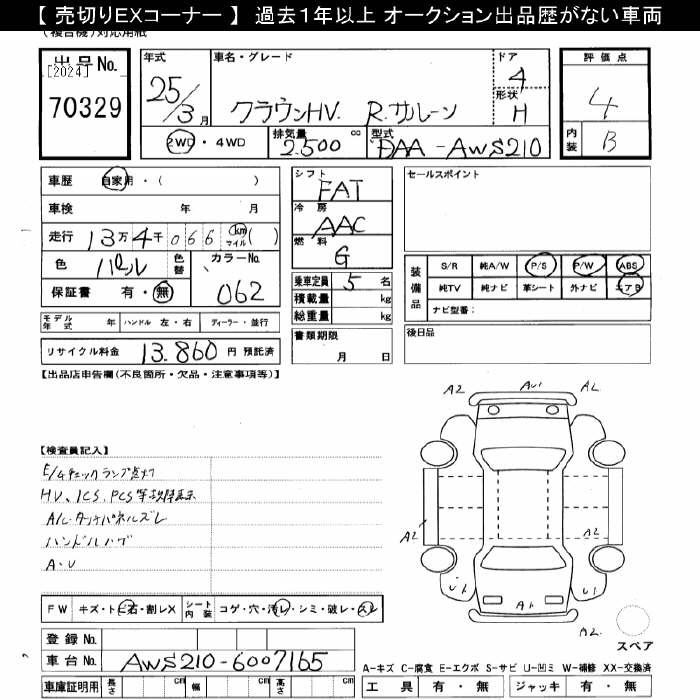 【 売切りEXコーナー 】 過去1年以上 オークション出品歴がない車両
(複合機)対応用紙
出品 No.
[2024]
70329
年式
25/3月
車名・グレード
クラウンHV. R.サルーン
ドア
4
形状
H
評価点
4
内装
B
2WD ・ 4WD
排気量
2.500 cc
型式
DAA-AWS210
車歴 自家用・( )
車検 年 月
走行 13万4千066 km マイル ( )
色 パール 色替
カラーNo. 062
保証書 有・無
シフト
FAT
冷房
AAC
燃料
G
乗車定員 5 名
積載量 kg
総重量 kg
セールスポイント
装備品
S/R 純A/W P/S P/W ABS
純TV 純ナビ 革シート 外ナビ エアB
ナビ型番:
モデル年式 年 ハンドル 左・右 ディーラー・並行
リサイクル料金 13.860 円 預託済
書類期限
月 日
後日品
【出品店申告欄(不良箇所・欠品・注意事項等)】
A2 AU1 A2
【検査員記入】
E/Gチェックランプ点灯
HV、ICS、PCS等故障表示
A/C・タッチパネルズレ
ハンドルハゲ
A・U
A2 A2
U1 A1 U1
A2
スペア
FW キズ・ト・ビ石・割レX シート内装 コゲ・穴・汚レ・シミ・破レ・スレ
登録 No.
車台 No. AWS210-6007165
車庫証明用 長さ cm 幅 cm 高さ cm
A-キズ C-腐食 E-エクボ S-サビ U-凹ミ W-補修 XX-交換済
工具 有・無 ジャッキ 有・無